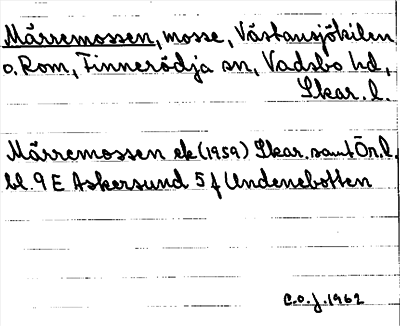 Märremossen, mosse, Västansjökilen
o. Rom, Finnerödja sn, Vadsbo hd,
Skar. l.
Märremossen ek (1959) Skar. samt Ör. l.
bl. 9 E Askersund 5 f Undenebotten
C.O.J. 1962